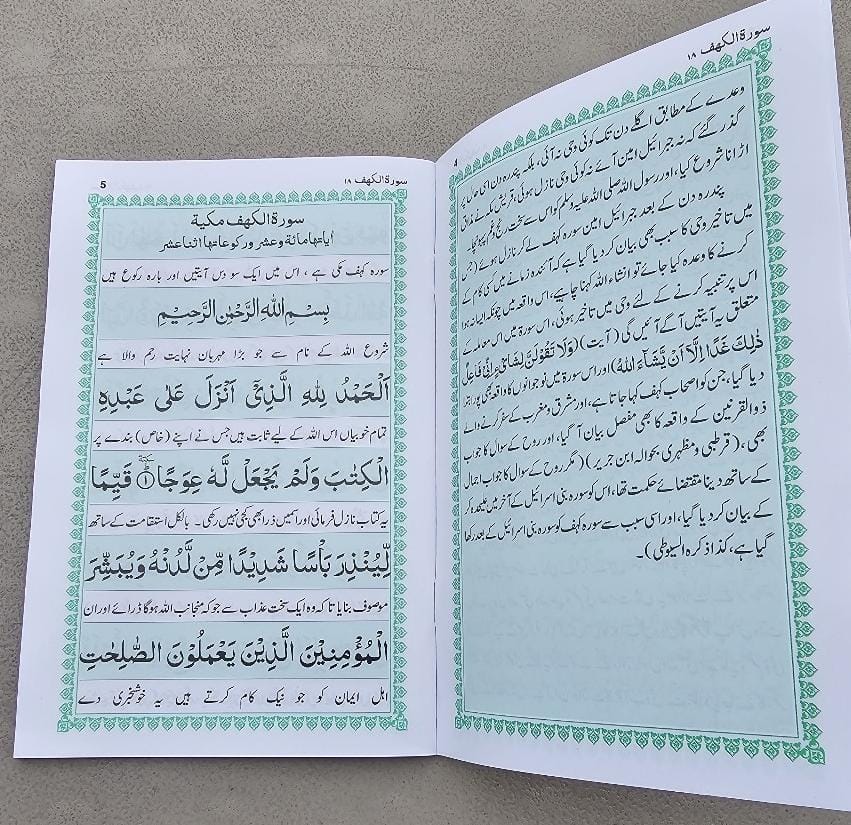 سورۃ الکہف ۱۸
4
وعدے کے مطابق اگلے دن تک کوئی وحی نہ آئی، بلکہ پندرہ دن اسی حال پر
گذر گئے کہ نہ جبرائیل امین آئے نہ کوئی وحی نازل ہوئی، قریش مکہ نے مذاق
اڑانا شروع کیا، اور رسول اللہ صلی اللہ علیہ وسلم کو اس سے سخت رنج و غم پہنچا۔
پندرہ دن کے بعد جبرائیل امین سورہ کہف لے کر نازل ہوئے (جس
میں تاخیر وحی کا سبب بھی بیان کر دیا گیا ہے کہ آئندہ زمانے میں کسی کام کے
کرنے کا وعدہ کیا جائے تو انشاء اللہ کہنا چاہیے، اس واقعہ میں چونکہ ایسا نہ ہوا
اس پر تنبیہ کرنے کے لئے وحی میں تاخیر ہوئی، اس سورۃ میں اس معاملے کے
متعلق یہ آیتیں آگے آئیں گی (آیت) (وَلَا تَقُوْلَنَّ لِشَایْءٍ اِنِّیْ فَاعِلٌ
ذٰلِكَ غَدًا اِلَّآ اَنْ يَّشَآءَ اللّٰهُ) اور اس سورۃ میں نوجوانوں کا واقعہ بھی پورا بتا
دیا گیا، جن کو اصحاب کہف کہا جاتا ہے، اور مشرق و مغرب کے سفر کرنے والے
ذوالقرنین کے واقعہ کا بھی مفصل بیان آ گیا، اور روح کے سوال کا جواب
بھی، (قرطبی و مظہری بحوالہ ابن جریر) (مگر روح کے سوال کا جواب اجمال
کے ساتھ دینا مقتضائے حکمت تھا، اس کو سورہ بنی اسرائیل کے آخر میں علیحدہ کر
کے بیان کر دیا گیا، اور اسی سبب سے سورہ کہف کو سورہ بنی اسرائیل کے بعد رکھا
گیا ہے، کذا ذکرہ السیوطی)۔
سورۃ الکہف ۱۸
5
سورۃ الکھف مکیة
اٰیاتہا مائة وعشر ورکوعاتہا اثنا عشر
سورہ کہف مکی ہے ، اس میں ایک سو دس آیتیں اور بارہ رکوع ہیں
بِسْمِ اللّٰهِ الرَّحْمٰنِ الرَّحِيْمِ
شروع اللہ کے نام سے جو بڑا مہربان نہایت رحم والا ہے
اَلْحَمْدُ لِلّٰهِ الَّذِيْٓ اَنْزَلَ عَلٰى عَبْدِهِ
تمام خوبیاں اس اللہ کے لیے ثابت ہیں جس نے اپنے (خاص) بندے پر
الْكِتٰبَ وَلَمْ يَجْعَلْ لَّهٗ عِوَجًا ۜ ۝۱ قَيِّمًا
یہ کتاب نازل فرمائی اور اسمیں ذرا بھی کجی نہیں رکھی۔ بالکل استقامت کے ساتھ
لِّيُنْذِرَ بَاْسًا شَدِيْدًا مِّنْ لَّدُنْهُ وَيُبَشِّرَ
موصوف بنایا تاکہ وہ ایک سخت عذاب سے جو کہ منجانب اللہ ہوگا ڈرائے اور ان
الْمُؤْمِنِيْنَ الَّذِيْنَ يَعْمَلُوْنَ الصّٰلِحٰتِ
اہل ایمان کو جو نیک کام کرتے ہیں یہ خوشخبری دے